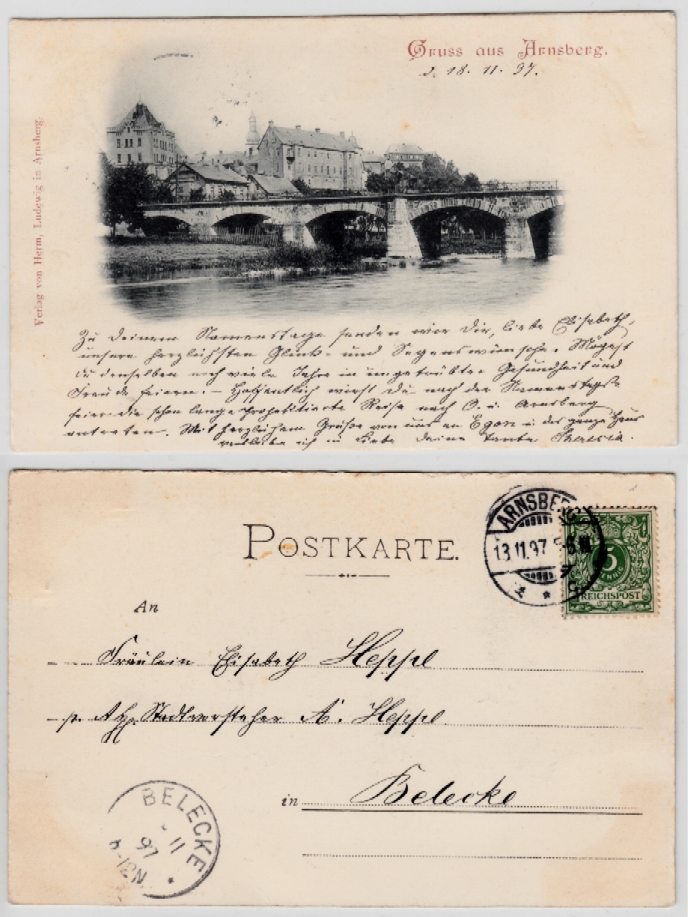 Gruss aus Arnsberg.
d. 18. 11. 97.
Verlag von Herm. Ludewig in Arnsberg.
Zu deinem Namenstage senden wir dir, liebe Elisabeth,
unsere herzlichsten Glück- und Segenswünsche. Mögest
du denselben noch viele Jahre in ungetrübter Gesundheit und
Freude feiern. — Hoffentlich wirst du nach der Namenstags-
feier die schon lange Reise nach Arnsberg
antreten. Mit herzlichem Grüße von uns an Egon u. das ganze Haus
verbleibe ich in Liebe deine Tante Theresia.
POSTKARTE.
ARNSBERG
13 11.97
5
REICHSPOST
An
Fräulein Elisabeth Heppe
Stadtvorsteher A. Heppe
in Belecke
BELECKE
11
97